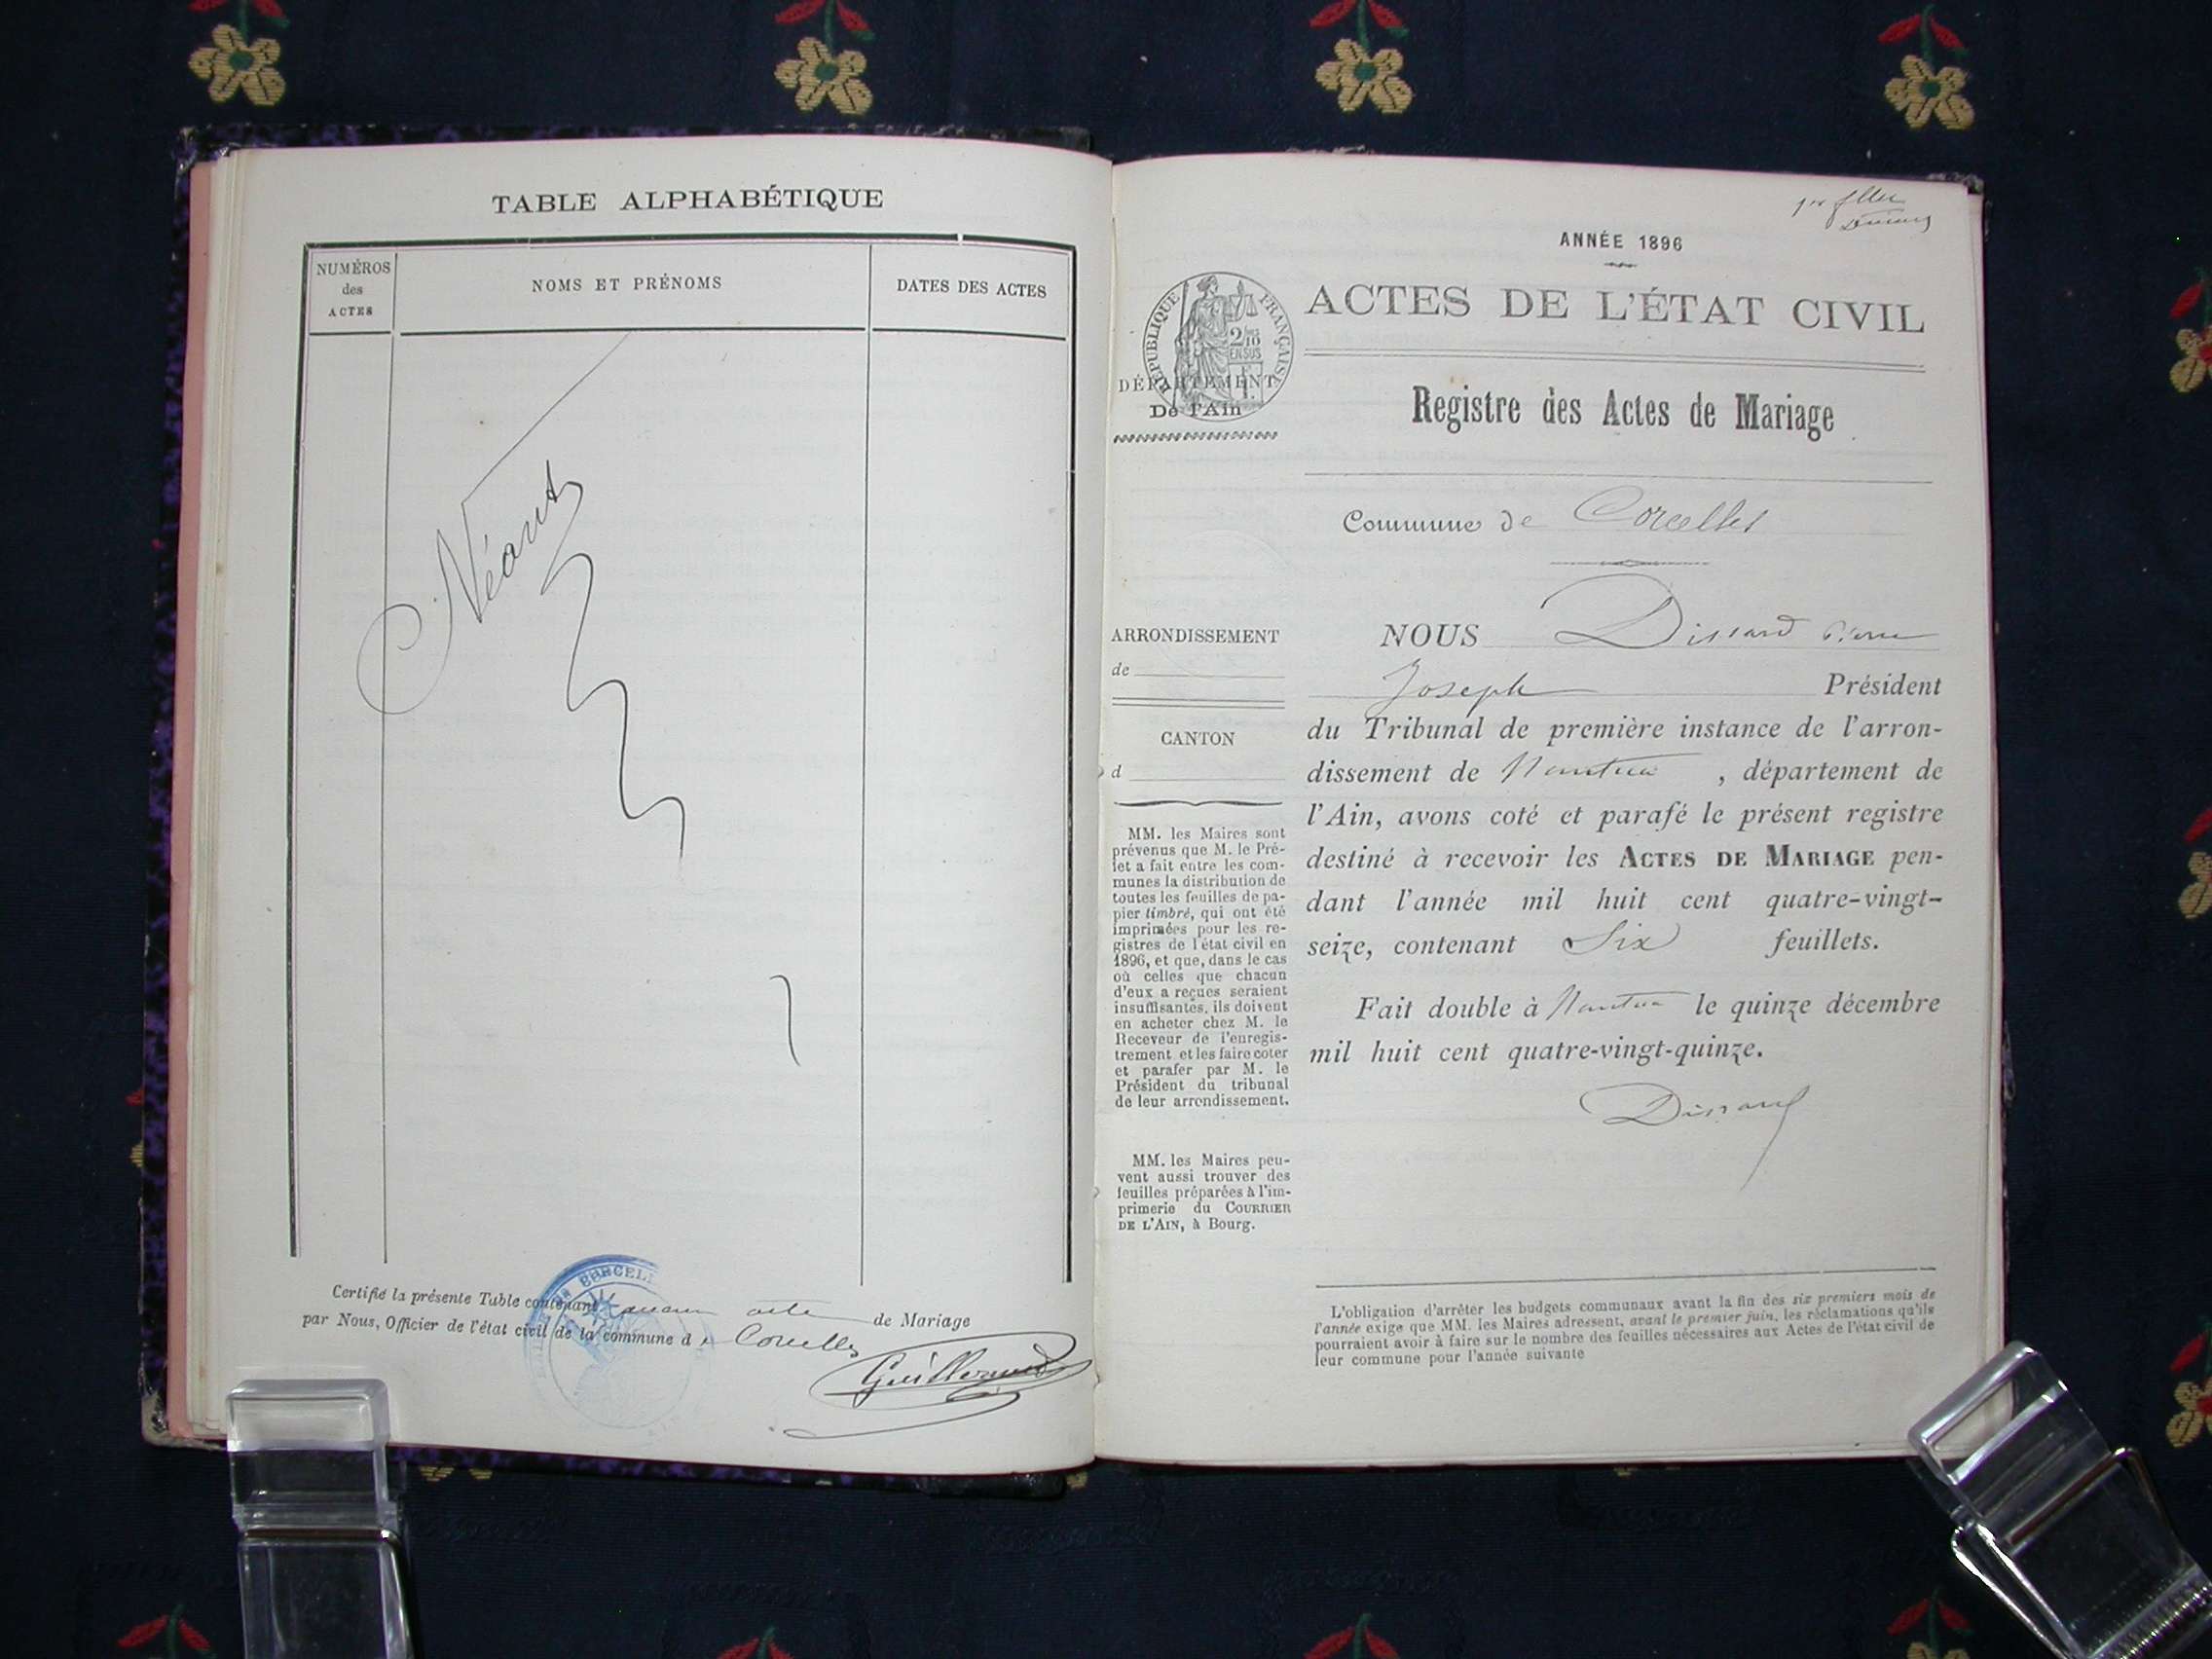 TABLE ALPHABÉTIQUE
NUMÉROS
des
ACTES
NOMS ET PRÉNOMS
DATES DES ACTES
Néant
Certifié la présente Table contenant aucun acte de Mariage
par Nous, Officier de l'état civil de la commune de Corcelles
CORCEL
Guillermet
1er fllet
Dissard
ANNÉE 1896
ACTES DE L'ÉTAT CIVIL
RÉPUBLIQUE FRANÇAISE
2/10
EN SUS
DÉPARTEMENT
De l'Ain
Registre des Actes de Mariage
Commune de Corcelles
ARRONDISSEMENT
de
CANTON
d
MM. les Maires sont
prévenus que M. le Pré-
fet a fait entre les com-
munes la distribution de
toutes les feuilles de pa-
pier timbré, qui ont été
imprimées pour les re-
gistres de l'état civil en
1896, et que, dans le cas
où celles que chacun
d'eux a reçues seraient
insuffisantes, ils doivent
en acheter chez M. le
Receveur de l'enregis-
trement et les faire coter
et parafer par M. le
Président du tribunal
de leur arrondissement.
MM. les Maires peu-
vent aussi trouver des
feuilles préparées à l'im-
primerie du COURRIER
DE L'AIN, à Bourg.
NOUS Dissard Pierre
Joseph Président
du Tribunal de première instance de l'arron-
dissement de Nantua , département de
l'Ain, avons coté et parafé le présent registre
destiné à recevoir les ACTES DE MARIAGE pen-
dant l'année mil huit cent quatre-vingt-
seize, contenant Six feuillets.
Fait double à Nantua le quinze décembre
mil huit cent quatre-vingt-quinze.
Dissard
L'obligation d'arrêter les budgets communaux avant la fin des six premiers mois de
l'année exige que MM. les Maires adressent, avant le premier juin, les réclamations qu'ils
pourraient avoir à faire sur le nombre des feuilles nécessaires aux Actes de l'état civil de
leur commune pour l'année suivante